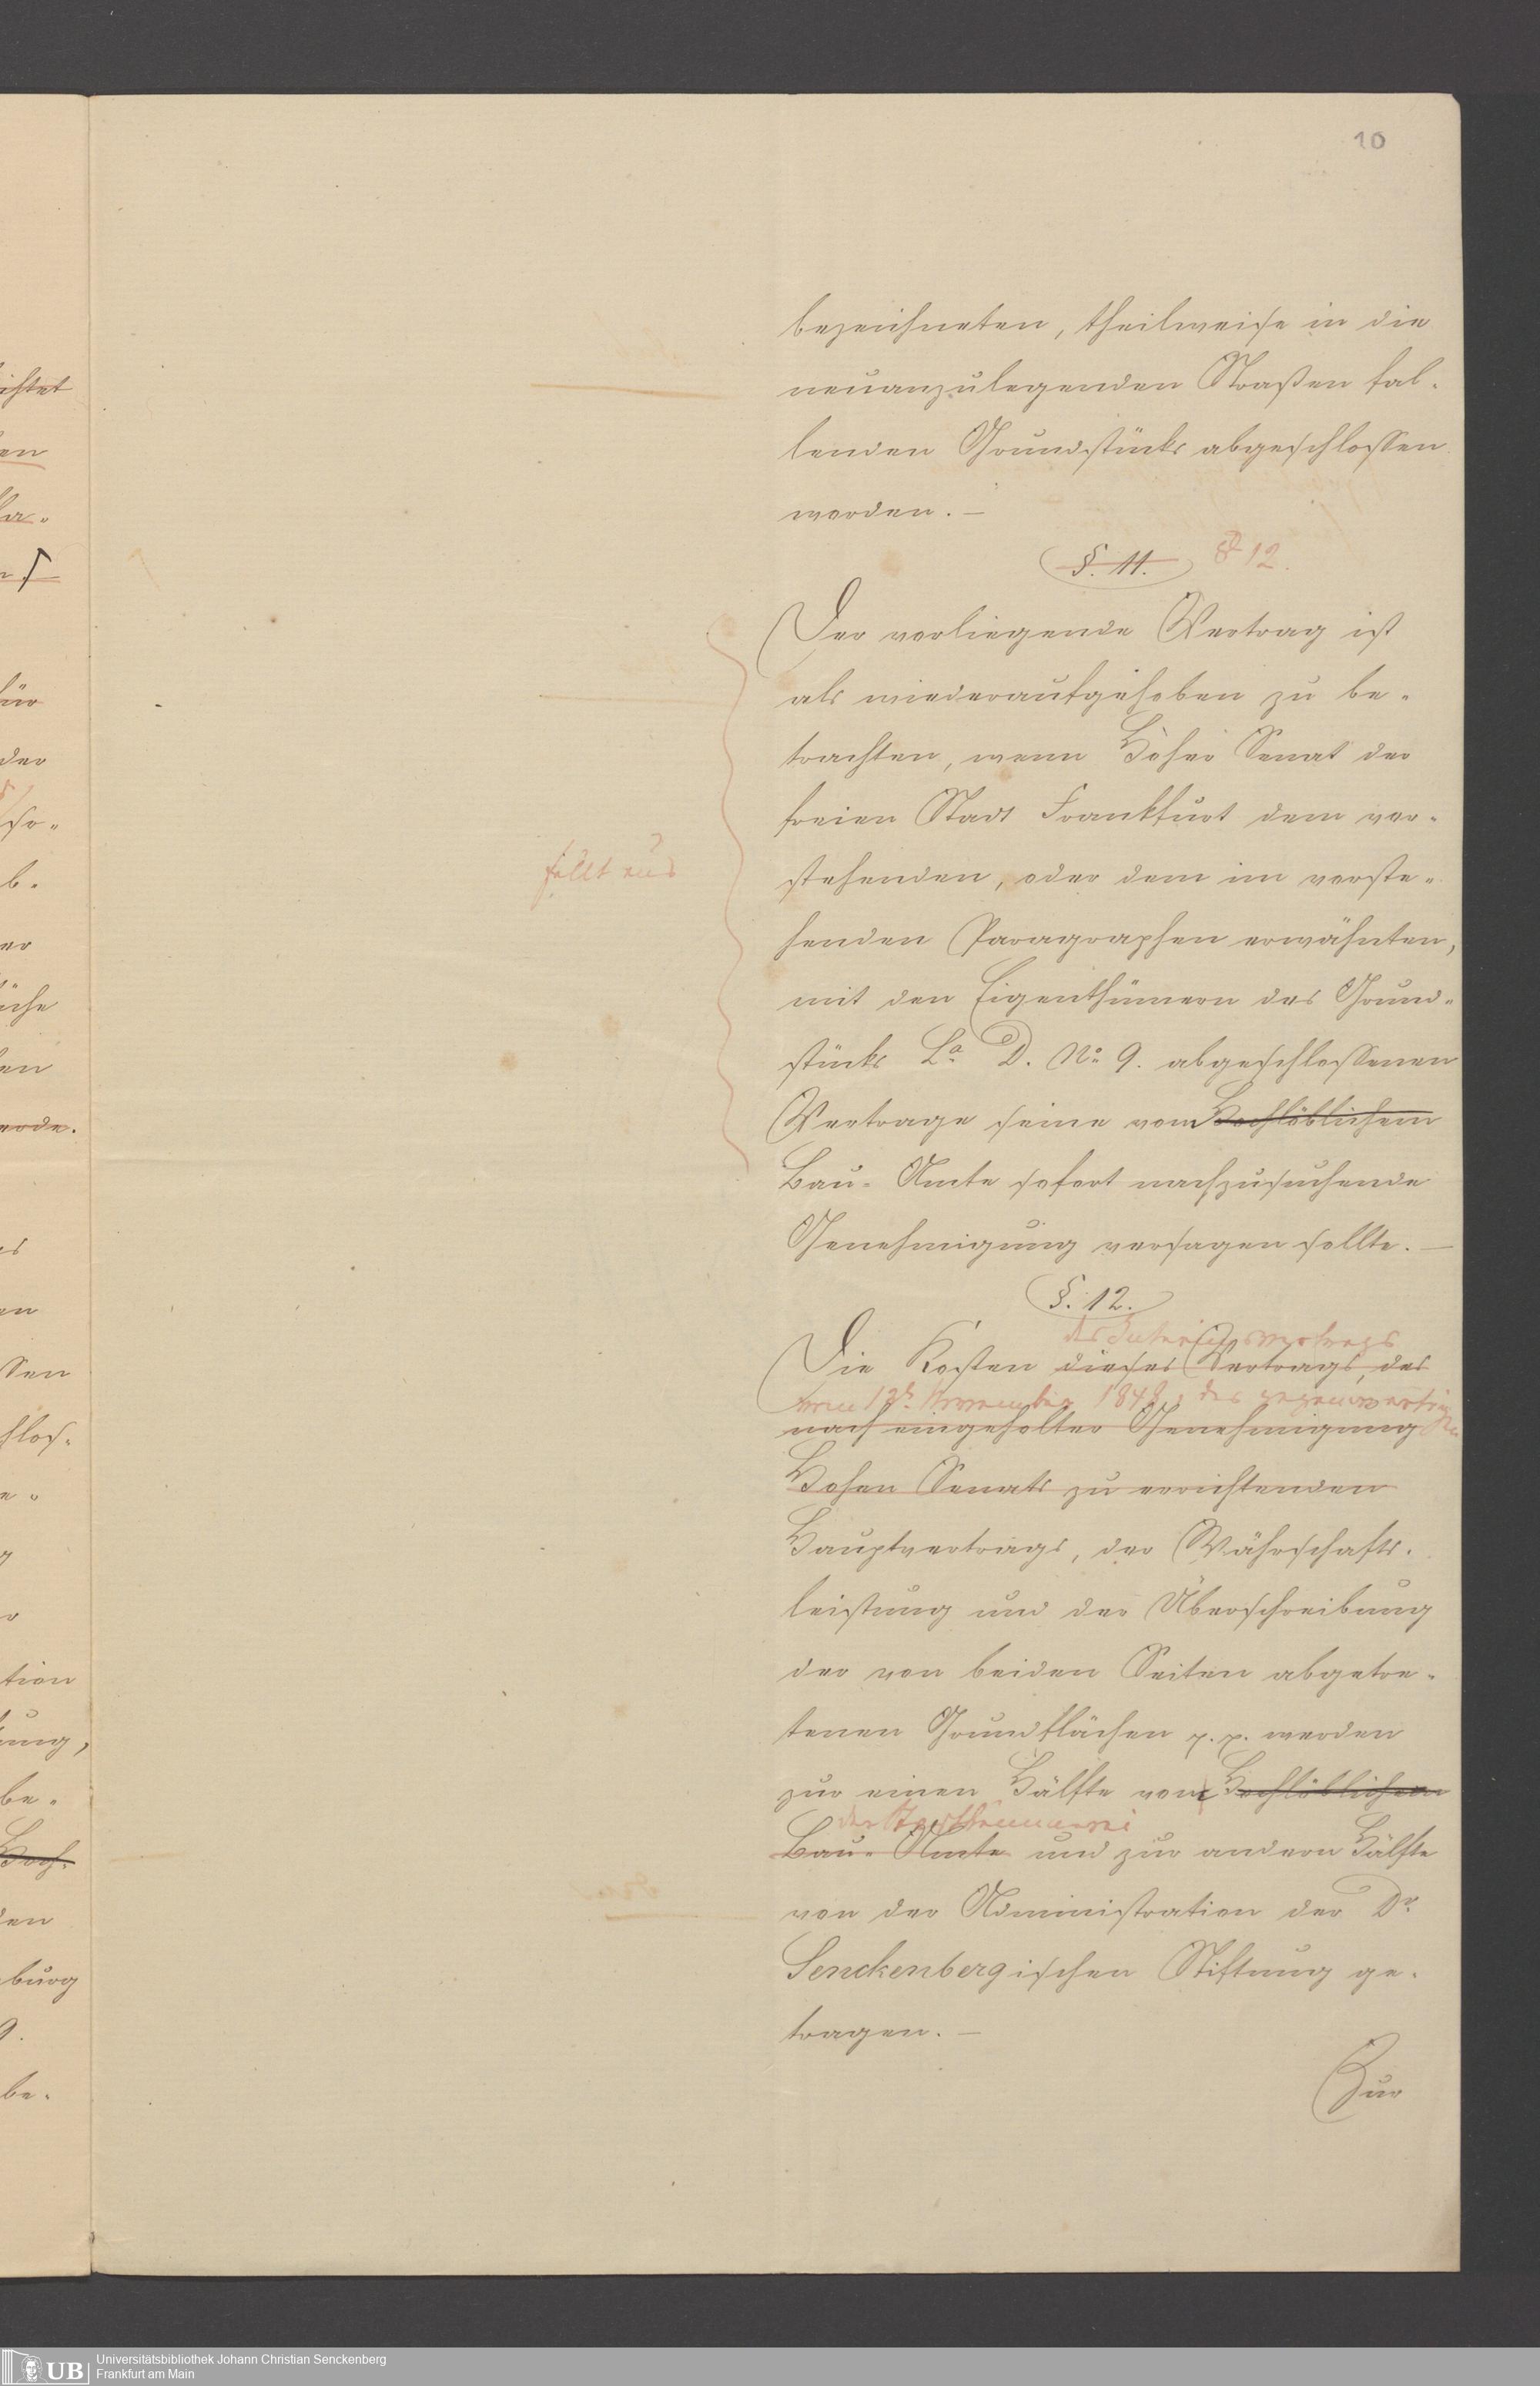 10
bezeichneten, theilweise in die
neuanzulegenden Straßen fal-
lenden Grundstücks abgeschlossen
worden. —
§. 11. § 12.
Der vorliegende Vertrag ist
als wiederaufgehoben zu be-
trachten, wenn Hoher Senat der
freien Stadt Frankfurt dem vor-
fällt aus
stehenden, oder dem im vorste-
henden Paragraphen erwähnten,
mit den Eigenthümern des Grund-
stücks La. D. No. 9. abgeschlossenen
Vertrage seine vom Hochlöblichem
Bau-Amte sofort nachzusuchende
Genehmigung versagen sollte. —
§. 12.
des Interimsvertrags
Die Kosten dieses Vertrags, des
vom 12t November 1848, des gegenwärtigen
nach eingeholter Genehmigung
Hohen Senats zu errichtenden
Hauptvertrags, der Währschafts-
leistung und der Überschreibung
der von beiden Seiten abgetre-
tenen Grundflächen p. p. werden
zur einen Hälfte vom Hochlöblichen
der Stadtkämmerei
Bau-Amte und zur andern Hälfte
von der Administration der Dr.
Senckenbergischen Stiftung ge-
tragen. —
Zur
ichtet
en
la-
für
der
so-
b.
er
äche
en
erde.
es
en
ssen
hlos-
e-
g
r
tion
ung,
be-
Hoch-
den
burg
9.
be-
UB
Universitätsbibliothek Johann Christian Senckenberg
Frankfurt am Main